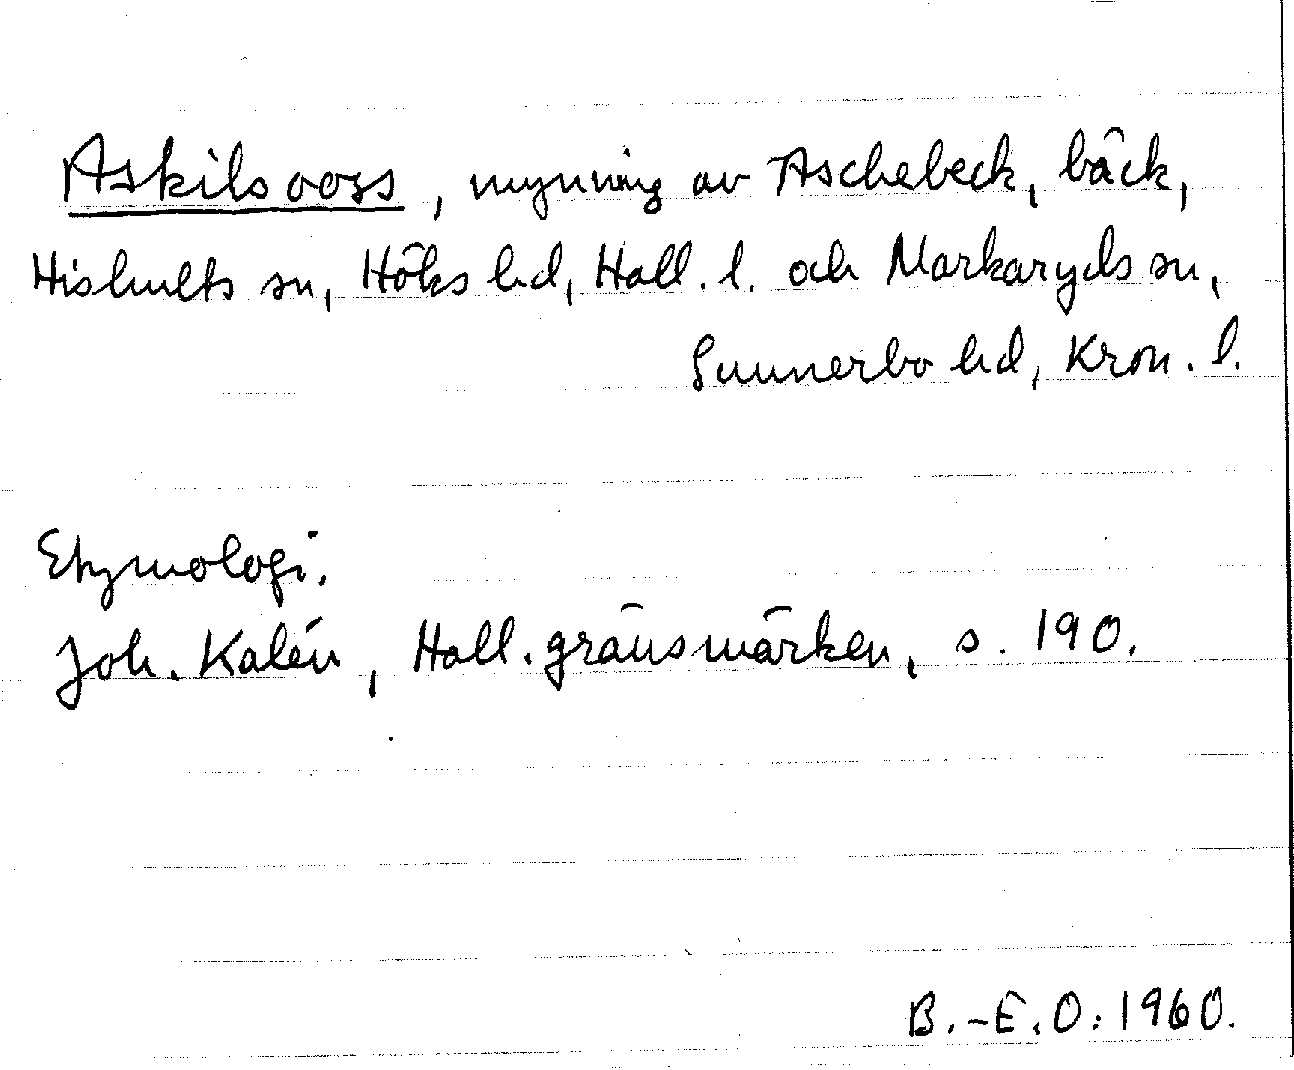 Askilsooss, mynning av Aschebeck, bäck,
Hishults sn, Höks hd, Hall. l. och Markaryds sn,
Sunnerbo hd, Kron. l.
Etymologi.
Joh. Kalén, Hall. gränsmärken, s. 190.
B.-E.O. 1960.